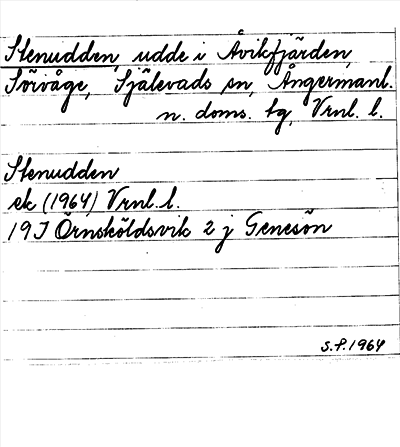 Stenudden, udde i Åvikfjärden,
Sörvåge, Själevads sn, Ångermanl.
n. doms. tg, Vrnl. l.
Stenudden
ek (1964) Vrnl. l.
19J Örnsköldsvik 2 j Genesön
S.F. 1964